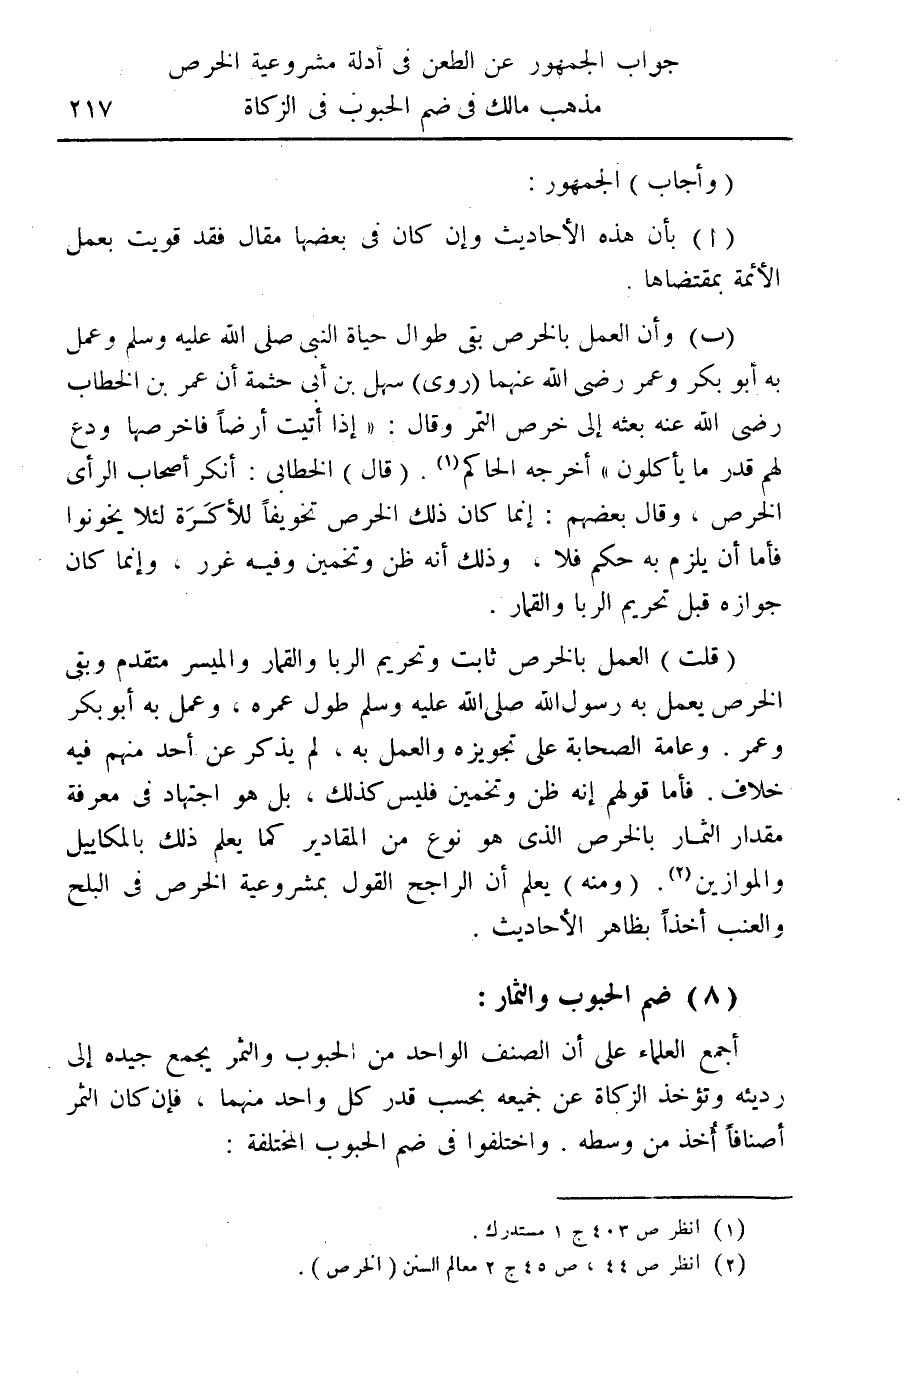 جواب الجمهور عن الطعن فى أدلة مشروعية الخرص
مذهب مالك فى ضم الحبوب فى الزكاة ٢١٧
( وأجاب ) الجمهور :
( ا ) بأن هذه الأحاديث وإن كان فى بعضها مقال فقد قويت بعمل
الأئمة بمقتضاها .
(ب) وأن العمل بالخرص بقى طوال حياة النبى صلى الله عليه وسلم وعمل
به أبو بكر وعمر رضى الله عنهما (روى) سهل بن أبى حثمة أن عمر بن الخطاب
رضى الله عنه بعثه إلى خرص التمر وقال : « إذا أتيت أرضاً فاخرصها ودع
لهم قدر ما يأكلون » أخرجه الحاكم(١) . ( قال ) الخطابى : أنكر أصحاب الرأى
الخرص ، وقال بعضهم : إنما كان ذلك الخرص تخويفاً للأكَرَة لئلا يخونوا
فأما أن يلزم به حكم فلا ، وذلك أنه ظن وتخمين وفيه غرر ، وإنما كان
جوازه قبل تحريم الربا والقمار .
( قلت ) العمل بالخرص ثابت وتحريم الربا والقمار والميسر متقدم وبقى
الخرص يعمل به رسول الله صلى الله عليه وسلم طول عمره ، وعمل به أبو بكر
وعمر . وعامة الصحابة على تجويزه والعمل به ، لم يذكر عن أحد منهم فيه
خلاف . فأما قولهم إنه ظن وتخمين فليس كذلك ، بل هو اجتهاد فى معرفة
مقدار الثمار بالخرص الذى هو نوع من المقادير كما يعلم ذلك بالمكاييل
والموازين(٢). ( ومنه ) يعلم أن الراجح القول بمشروعية الخرص فى البلح
والعنب أخذاً بظاهر الأحاديث .
( ٨ ) ضم الحبوب والثمار :
أجمع العلماء على أن الصنف الواحد من الحبوب والثمر يجمع جيده إلى
رديئه وتؤخذ الزكاة عن جميعه بحسب قدر كل واحد منهما ، فإن كان الثمر
أصنافاً أُخذ من وسطه . واختلفوا فى ضم الحبوب المختلفة :
(١) انظر ص ٤٠٣ ج ١ مستدرك .
(٢) انظر ص ٤٤ ، ص ٤٥ ج ٢ معالم السنن ( الخرص ) .